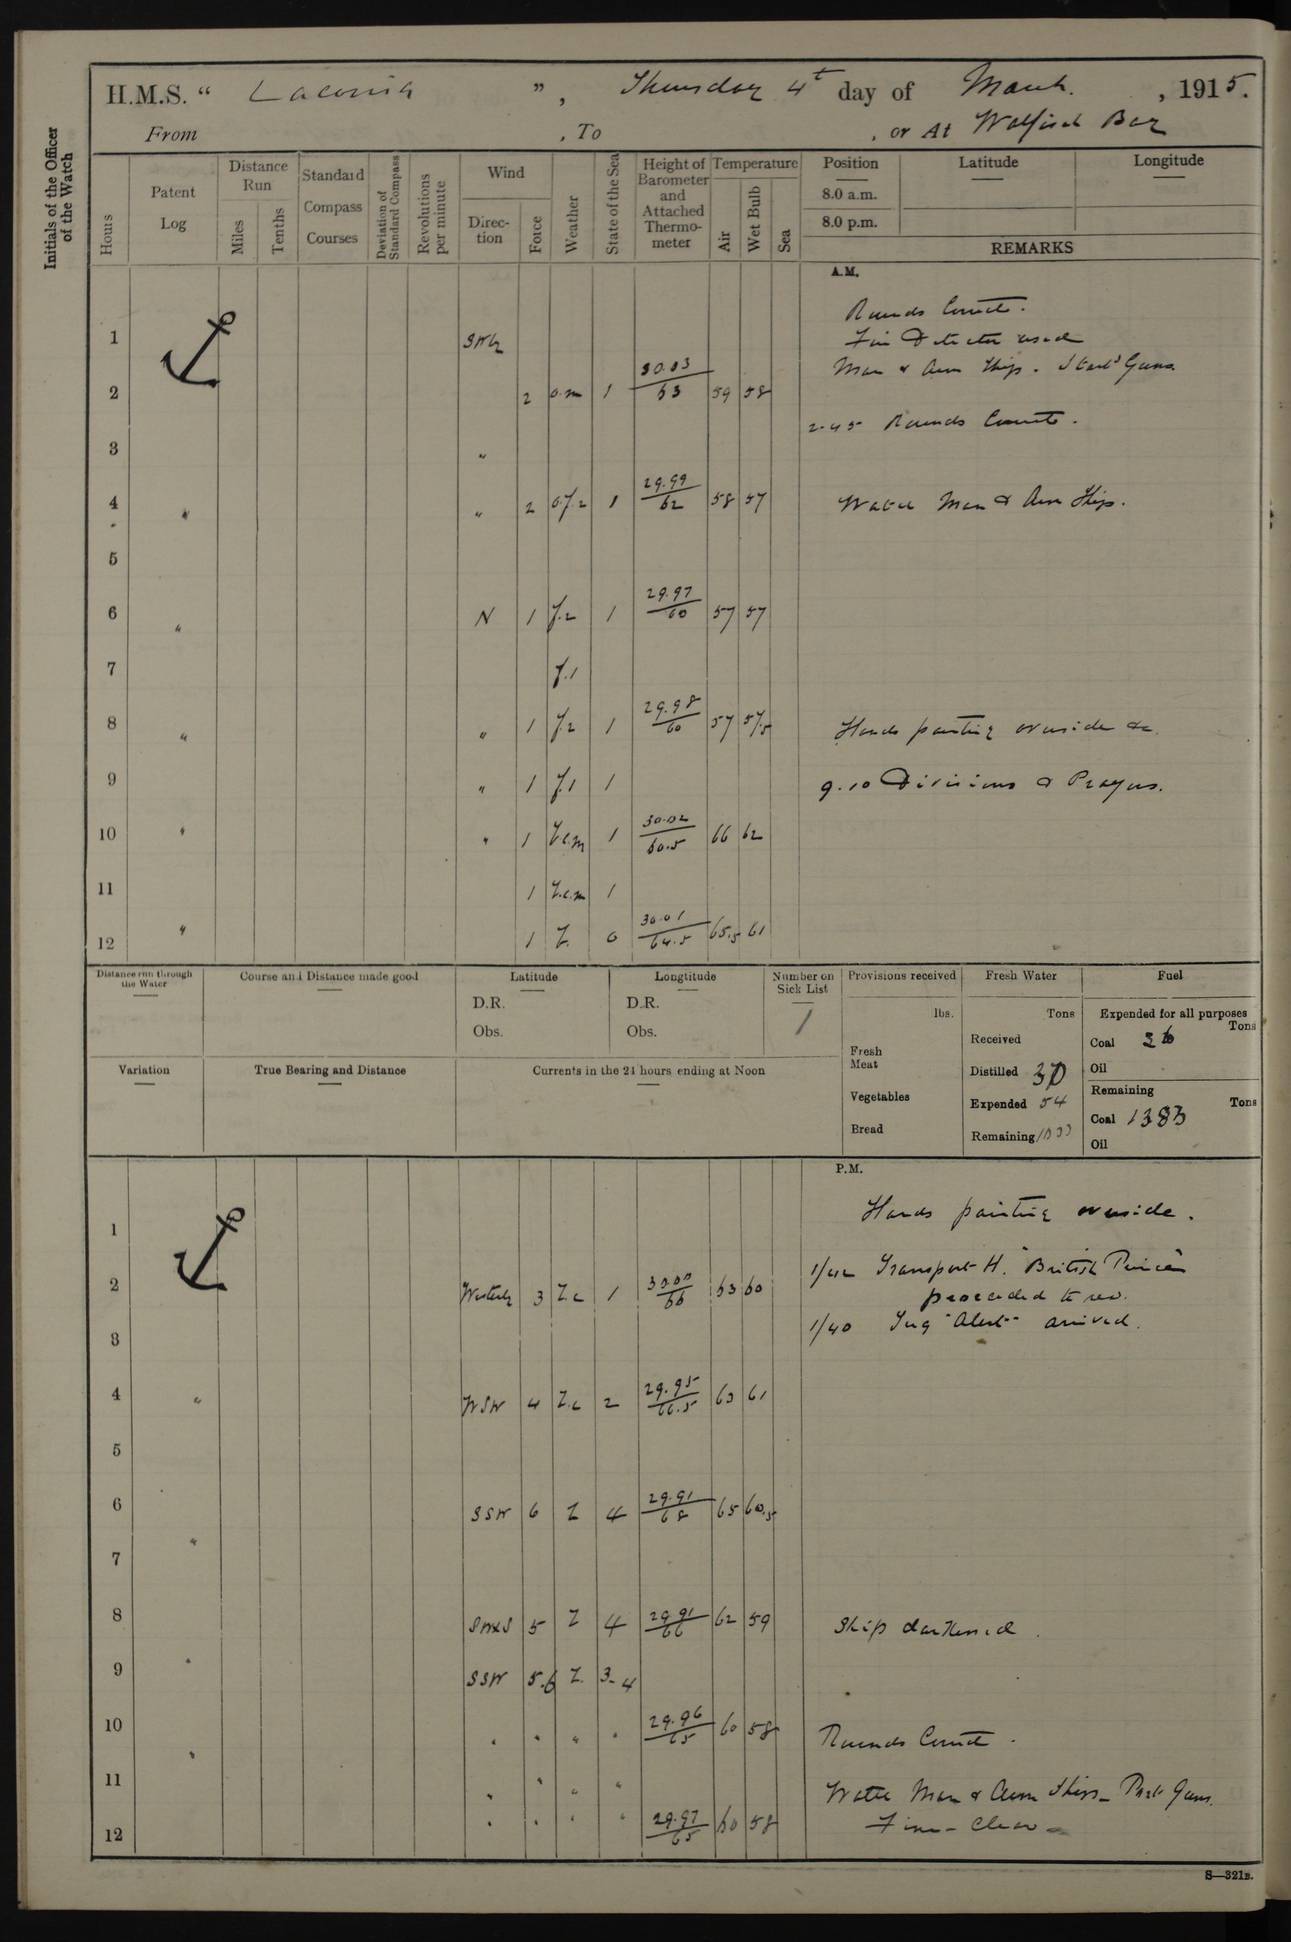 H.M.S. " Laconia ", Thursday 4th day of March, 1915.
From , To , or At Walfisch Bay
Initials of the Officer of the Watch
Hours
Patent Log
Distance Run
Miles
Tenths
Standard Compass Courses
Deviation of Standard Compass
Revolutions per minute
Wind
Direction
Force
Weather
State of the Sea
Height of Barometer and Attached Thermometer
Temperature
Air
Wet Bulb
Sea
Position
Latitude
Longitude
8.0 a.m.
8.0 p.m.
REMARKS
A.M.
Rounds Correct.
1 SWly Fire Detector used
Man & Arm Ship. Starbd Guns.
2 2 o.m 1 30.03/63 59 58
2-45 Rounds Correct.
3 "
4 " " 2 o.f.2 1 29.99/62 58 57 Watch Man & Arm Ship.
5
6 " N 1 f.2 1 29.97/60 57 57
7 f.1
8 " " 1 f.2 1 29.98/60 57 57.5 Hands painting overside &c.
9 " 1 f.1 1 9.10 Divisions & Prayers.
10 " " 1 Z.c.m 1 30.02/60.5 66 62
11 1 Z.c.m 1
12 " 1 Z. 0 30.01/64.5 65.5 61
Distance run through the Water
Course and Distance made good
Latitude
D.R.
Obs.
Longtitude
D.R.
Obs.
Number on Sick List
1
Provisions received
lbs.
Fresh Meat
Vegetables
Bread
Fresh Water
Tons
Received
Distilled 30
Expended 54
Remaining
Fuel
Expended for all purposes
Tons
Coal 36
Oil
Remaining
Tons
Coal 1383
Oil
Variation
True Bearing and Distance
Currents in the 24 hours ending at Noon
P.M.
1 Hands painting overside.
1/42 Transport H. "British Prince"
2 Westerly 3 Z.c 1 30.00/66 63 60 proceeded to sea.
3 1/40 Tug "Alert" arrived.
4 " WSW 4 Z.c 2 29.95/66.5 63 61
5
6 " SSW 6 Z 4 29.91/68 65 60.5
7
8 SWxS 5 Z 4 29.91/66 62 59 Ship darkened.
9 " SSW 5-6 Z. 3-4
10 " " " " " 29.96/65 60 58 Rounds Correct.
11 " " " " Watch Man & Arm Ship. Port Guns.
12 " " " " 29.97/65 60 58 Fine - Clear -
S—321B.